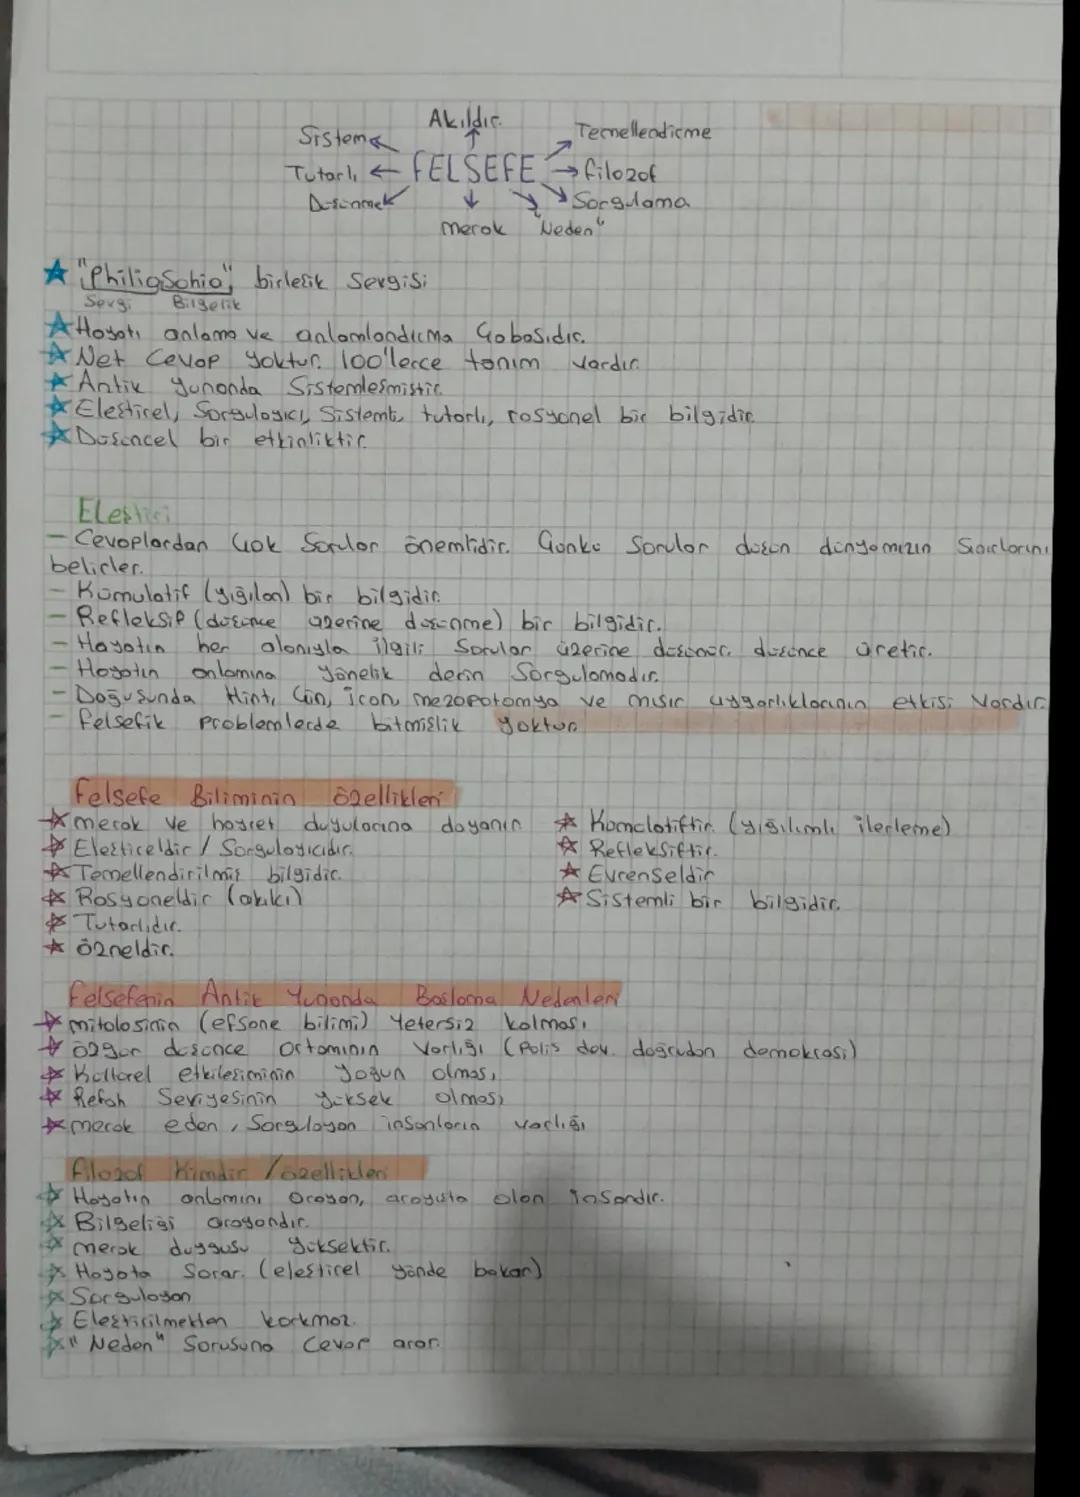 Akıldır.
Sistem Temellendirme
Tutarlı FELSEFE filozof
Düşünmek Sorgulama
merak "Neden"
"PhiliaSohia"; birleşik Sevgisi
Sevgi Bilgelik
Hayatı anlama ve anlamlandırma Çabasıdır.
Net Cevap yoktur. 100'lerce tanım vardır.
Antik yunanda Sistemleşmiştir.
Eleştirel, Sorgulayıcı, Sistemli, tutarlı, rasyonel bir bilgidir.
Düşüncel bir etkinliktir.
Eleştiri
- Cevaplardan Çok Sorular önemlidir. Çünkü Sorular düşün dünyamızın Sınırlarını
belirler.
- Kümülatif (yığılan) bir bilgidir.
- Refleksif (düşünce üzerine düşünme) bir bilgidir.
- Hayatın her alanıyla ilgili Sorular üzerine düşünür, düşünce üretir.
- Hayatın anlamına yönelik derin Sorgulamadır.
- Doğuşunda Hint, Çin, İran, mezopotamya ve mısır uygarlıklarının etkisi Vardır.
- felsefik Problemlerde bitmişlik yoktur.
felsefe Biliminin özellikleri
merak ve hayret duygularına dayanır.
Eleştireldir / Sorgulayıcıdır.
Temellendirilmiş bilgidir.
Rasyoneldir (akılcı)
Tutarlıdır.
özneldir.
Kümülatiftir. (yığılımlı ilerleme)
Refleksiftir.
Evrenseldir
Sistemli bir bilgidir.
felsefenin Antik Yunanda Başlama Nedenleri
mitolojinin (efsane bilimi) Yetersiz kalması
özgür düşünce Ortamının Varlığı (Polis dev. doğrudan demokrasi)
Kültürel etkileşiminin Yoğun olması
Refah Seviyesinin yüksek olması
merak eden, Sorgulayan insanların varlığı
filozof Kimdir / özellikleri
Hayatın anlamını arayan, arayışta olan insandır.
Bilgeliği arayandır.
merak duygusu yüksektir.
Hayata Sorar. (eleştirel yönde bakar)
Sorgulayan
Eleştirilmekten korkmaz.
"Neden" Sorusuna Cevap arar.